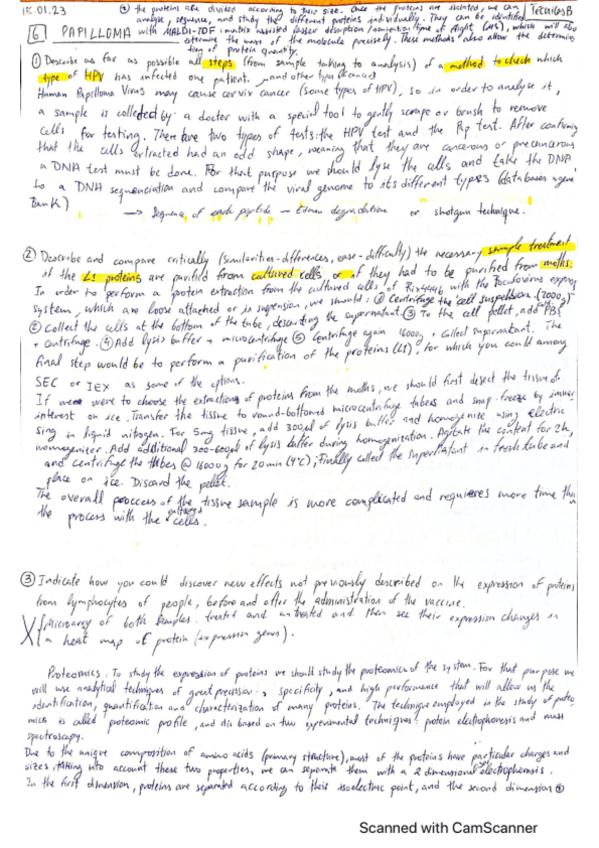 15.01.23
* the proteins are divided according to their size. Once the proteins are isolated, we can
analyse, sequence, and study the different proteins individually. They can be identified
6 PAPILLOMA with MALDI-TOF: matrix assisted laser desorption/ionization time of flight (MS), which will also
determine the mass of the molecule precisely. These methods also allow the determina
ting of protein quantity.
① Describe as far as possible all steps (from sample taking to analysis) of a method to check which
type of HPV has infected one patient.
Human Papilloma Virus may cause cervix cancer (some types of HPV), so in order to analyse it,
a sample is collected by a doctor with a special tool to gently scrape or brush to remove
cells for testing. There are two types of tests: the HPV test and the Pap test. After confirming
that the cells extracted had an odd shape, meaning that they are cancerous or precancerous
a DNA test must be done. For that purpose we should lyse the cells and take the DNA
to a DNA sequenciation and compare the viral genome to its different types (databases
Bank)
→ Sequence of each peptide – Edman degradation or shotgun technique.
② Describe and compare critically (similarities-differences, ease-difficulty) the necessary sample treatment
if the L1 proteins are purified from cultured cells or if they had to be purified from moths.
In order to perform a protein extraction from the cultured cells of Rix4446 with the Baculovirus express
system, which are loose attached or in suspension, we should: ① Centrifuge the cell suspension (2000g)
② Collect the cells at the bottom of the tube, the supernatant. ③ To the cell pellet, add PBS
+ centrifuge. ④ Add lysis buffer + microcentrifuge ⑤ Centrifuge again 16000g, + collect supernatant. The
final step would be to perform a purification of the proteins (L1), for which you could among
SEC or IEX as some of the options.
If we were to choose the extraction of proteins from the moths, we should first disect the tissue of
interest on ice. Transfer the tissue to round-bottomed microcentrifuge tubes and snap-freeze by immer
sing in liquid nitrogen. For 5mg tissue, add 300μl of lysis buffer and homogenize using electric
homogenizer. Add additional 300-600μl of lysis buffer during homogenization. Agitate the content for 2h,
and centrifuge the tubes @ 16000g for 20min (4°C); Finally collect the supernatant in fresh tube and
place on ice. Discard the pellet.
The overall proccess of the tissue sample is more complicated and requieres more time than
the process with the cultured cells.
③ Indicate how you could discover new effects not previously described on the expression of proteins
from lymphocytes of people, before and after the administration of the vaccine.
X Microarray of both samples treated and untreated and then see their expression changes in
a heat map of protein (expression genes).
Proteomics. To study the expression of proteins we should study the proteomics of the system. For that purpose we
will use analytical techniques of great precision, specificity, and high performance that will allow us the
identification, quantification and characterization of many proteins. The technique employed in the study of proteo
mics is called proteomic profile, and is based on two experimental techniques: protein electrophoresis and mass
spectroscopy.
Due to the unique composition of amino acids (primary structure), most of the proteins have particular charges and
sizes, taking into account these two properties, we can separate them with a 2 dimensional electrophoresis.
In the first dimension, proteins are separated according to their isoelectric point, and the second dimension *
Scanned with CamScanner